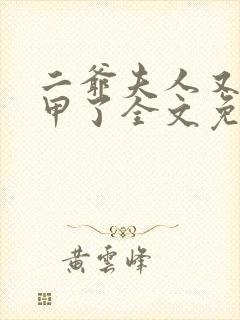 二爺夫人又
甲了全文免
黄雲峰